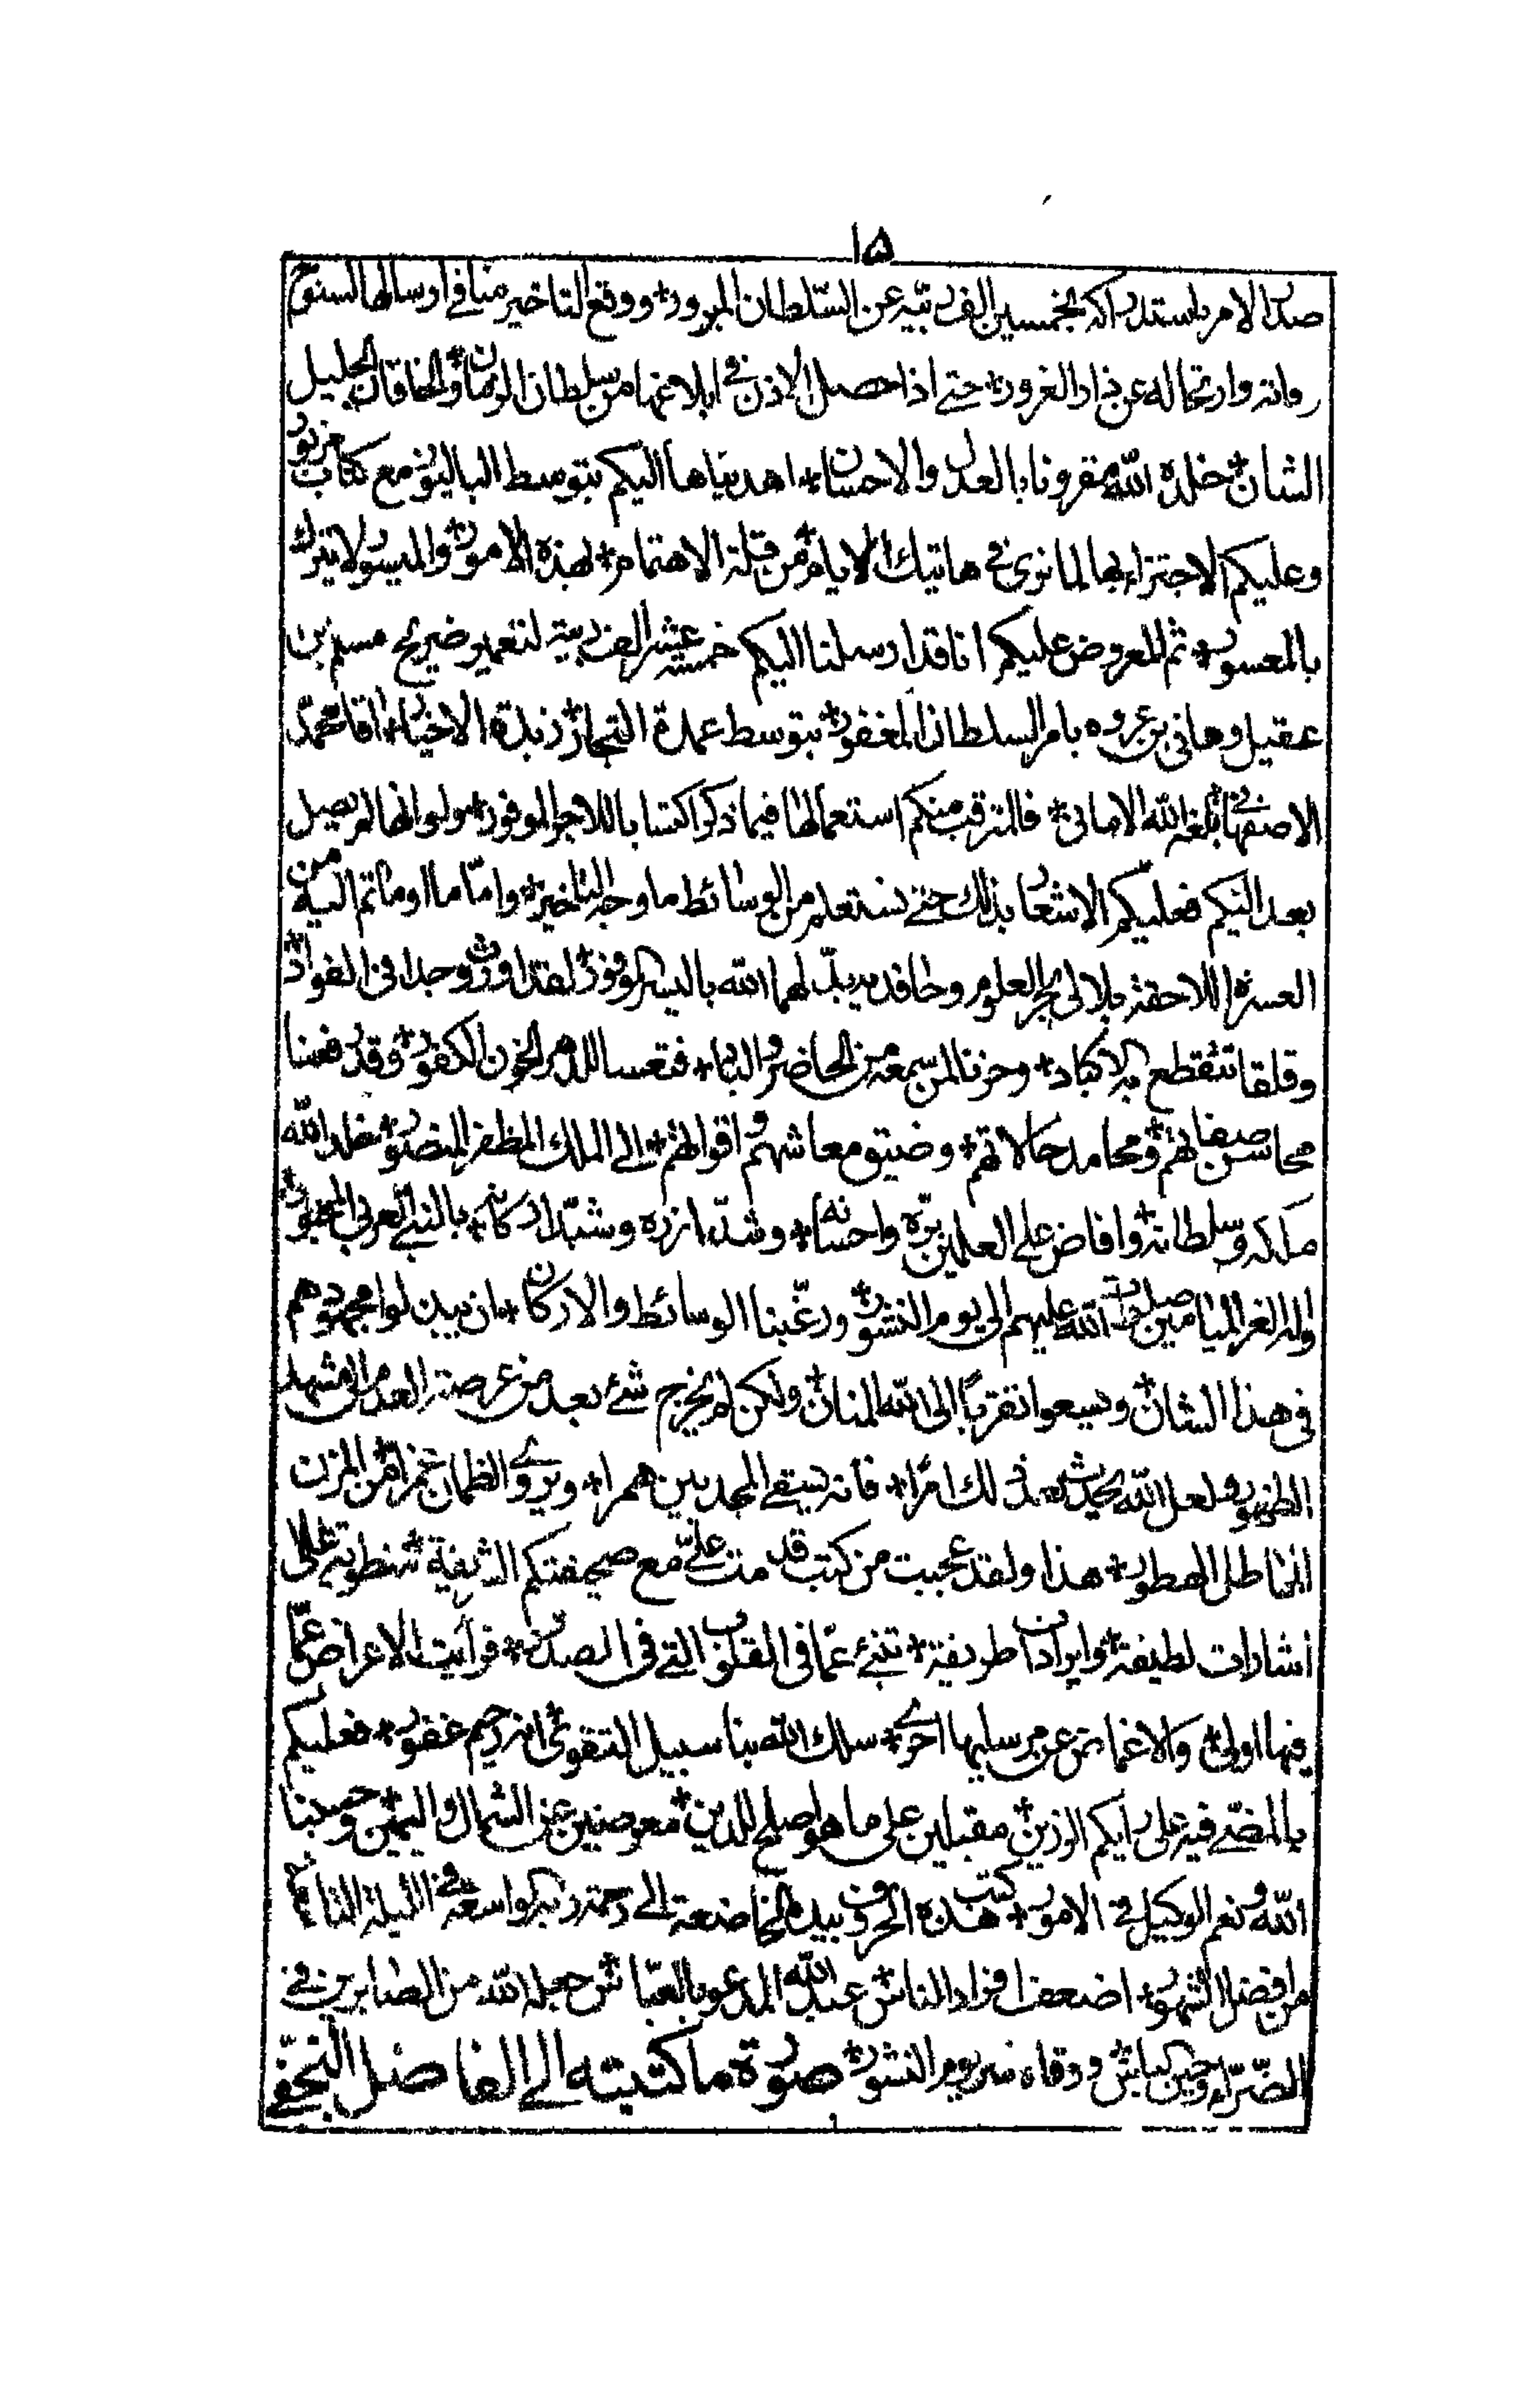 ١٥
صدر الامر باستدراكه بخمسين الف ربيّة عن السّلطان المبرور؞ ووقع التاخير منا في ارسالها لسنوح
وفاته وارتحاله عن دار الغرور؞ حتے اذا حصل الاذن فے ابلاغها من سلطان الزمان؞ والخاقان الجليل
الشان؞ خلده الله مقرونا بالعدل والاحسان؞ اهديناها اليكم بتوسط الباليوز مع كتاب مزبور
وعليكم الاجتزاء بها لما نرى فے هاتيك الايام؞ من قلة الاهتمام؞ لهذه الامور؞ والميسور لا يترك
بالمعسور؞ ثم المعروض عليكم انا قد ارسلنا اليكم خمسة عشر الف ربية لتعمير ضريح مسلم بن
عقيل وهانى بن عروه بامر السلطان المغفور؞ بتوسط عمدة التجار؞ زبدة الاخيار؞ اقا محمد
الاصفهانے بلغه الله الامانى؞ فالمترقب منكم استعمالها فيما ذكر اكتسابا للاجر الموفور؞ ولو انها لم يصل
بعد اليكم فعليكم الاشعار بذلك حتے نستعلم من الوسائط ما وجه التاخير؞ وامّا ما اومأتم اليه من
العسرة اللاحقة بلالى بحر العلوم وحافديه بدّل لهما الله باليسر الموفور؞ لقد اورث وجدا فى الفواد؞
وقلقا تنقطع به الاكباد؞ وحزنا لمن سمعه من الحاضر والباد؞ فتعسا للدهر الخون الكفور؞ وقد رفعنا
محاسن صفاتهم؞ ومحامد حالاتهم؞ وضيق معاشهم واقواتهم؞ الے الملك المظفر المنصور؞ خلد الله
ملكه وسلطانه؞ وافاض علے العلمين برّه واحسانه؞ وشدّ ازره وشيّد اركانه؞ بالنبے العربى المحبور؞
واله الغر الميامين صلوات الله عليهم الى يوم النشور؞ ورغّبنا الوسائط والاركان؞ ان يبذلوا مجهودهم
فى هذا الشان؞ ويسعوا تقربًا الى الله المنان؞ ولكن لم يخرج شئ بعد من عرصة العدم الى مشهد
الظهور؞ ولعل الله يحدث بعد ذلك امرًا؞ فانه يسقے المجدبين همرا؞ ويروے الظمان غمرا؞ من المزن
الهاطل المطور؞ هذا ولقد عجبت من كتب قدمت علےّ مع صحيفتكم الشريفة؞ منطوية على
اشارات لطيفة؞ وايرادات طريفة؞ تنبئ عمّا فى القلوب التے فى الصدور؞ فرأيت الاعراض عمّا
فيها اولى؞ والاغماض عن مرسليها احرے؞ سلك الله بنا سبيل التقوى؞ انه رحيم غفور؞ فعليكم
بالمضے فيه على رايكم الرزين؞ مقبلين على ما هو اصلح للدين؞ معرضين عن الشمال واليمين؞ وحسبنا
الله ونعم الوكيل فے الامور؞ كتب هذه الحروف بيده الخاضعة الے رحمة ربه الواسعة فے الليلة التاسعة
من افضل الشهور؞ اضعف افراد الناس؞ عبد الله المدعو بالعبّاس؞ جعله الله من الصابرين فے
الضّراء وحين الباس؞ ووقاه شر يوم النشور؞ صورة ما كتبته الے الفاضل النجفے